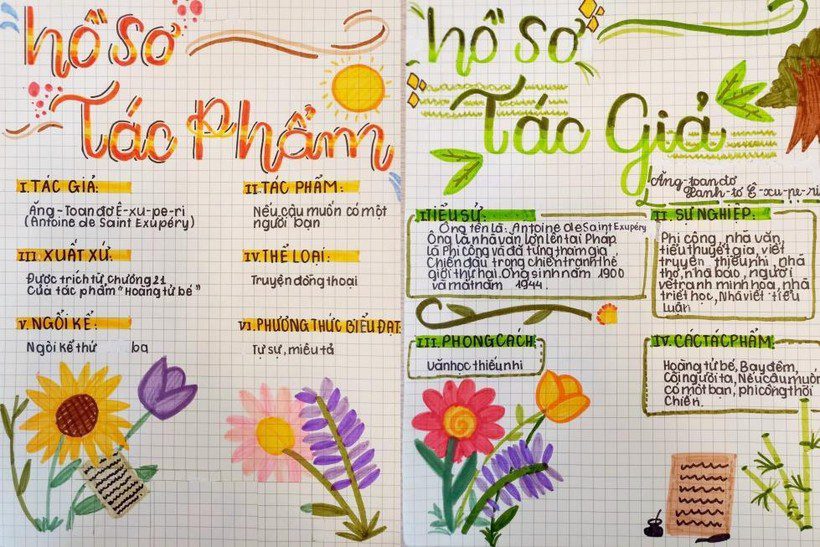 hồ sơ
Tác Phẩm
I. TÁC GIẢ:
Ăng-Toan đơ Ê-xu-pe-ri
(Antoine de Saint Exupéry)
II. TÁC PHẨM:
Nếu cậu muốn có một
người bạn
III. XUẤT XỨ:
Được trích từ chương 21
của tác phẩm "Hoàng tử bé"
IV. THỂ LOẠI:
Truyện đồng thoại
V. NGÔI KỂ:
Ngôi kể thứ ba
VI. PHƯƠNG THỨC BIỂU ĐẠT
Tự sự, miêu tả
hồ sơ
Tác Giả
Ăng-toan đơ
Xanh-tơ Ê-xu-pe-ri
I. TIỂU SỬ:
Ông tên là: Antoine de Saint Exupéry
Ông là nhà văn lớn lên tại Pháp
là Phi công và đã từng tham gia
Chiến đấu trong chiến tranh thế
giới thứ hai. Ông sinh năm 1900
và mất năm 1944.
II. SỰ NGHIỆP:
Phi công, nhà văn,
tiểu thuyết gia, viết
truyện thiếu nhi, nhà
thơ, nhà báo, người
vẽ tranh minh họa, nhà
triết học, Nhà viết tiểu
luận
III. PHONG CÁCH
văn học thiếu nhi
IV. CÁC TÁC PHẨM:
Hoàng tử bé, Bay đêm,
Cõi người ta, Nếu cậu muốn
có một bạn, phi công thời
Chiến.